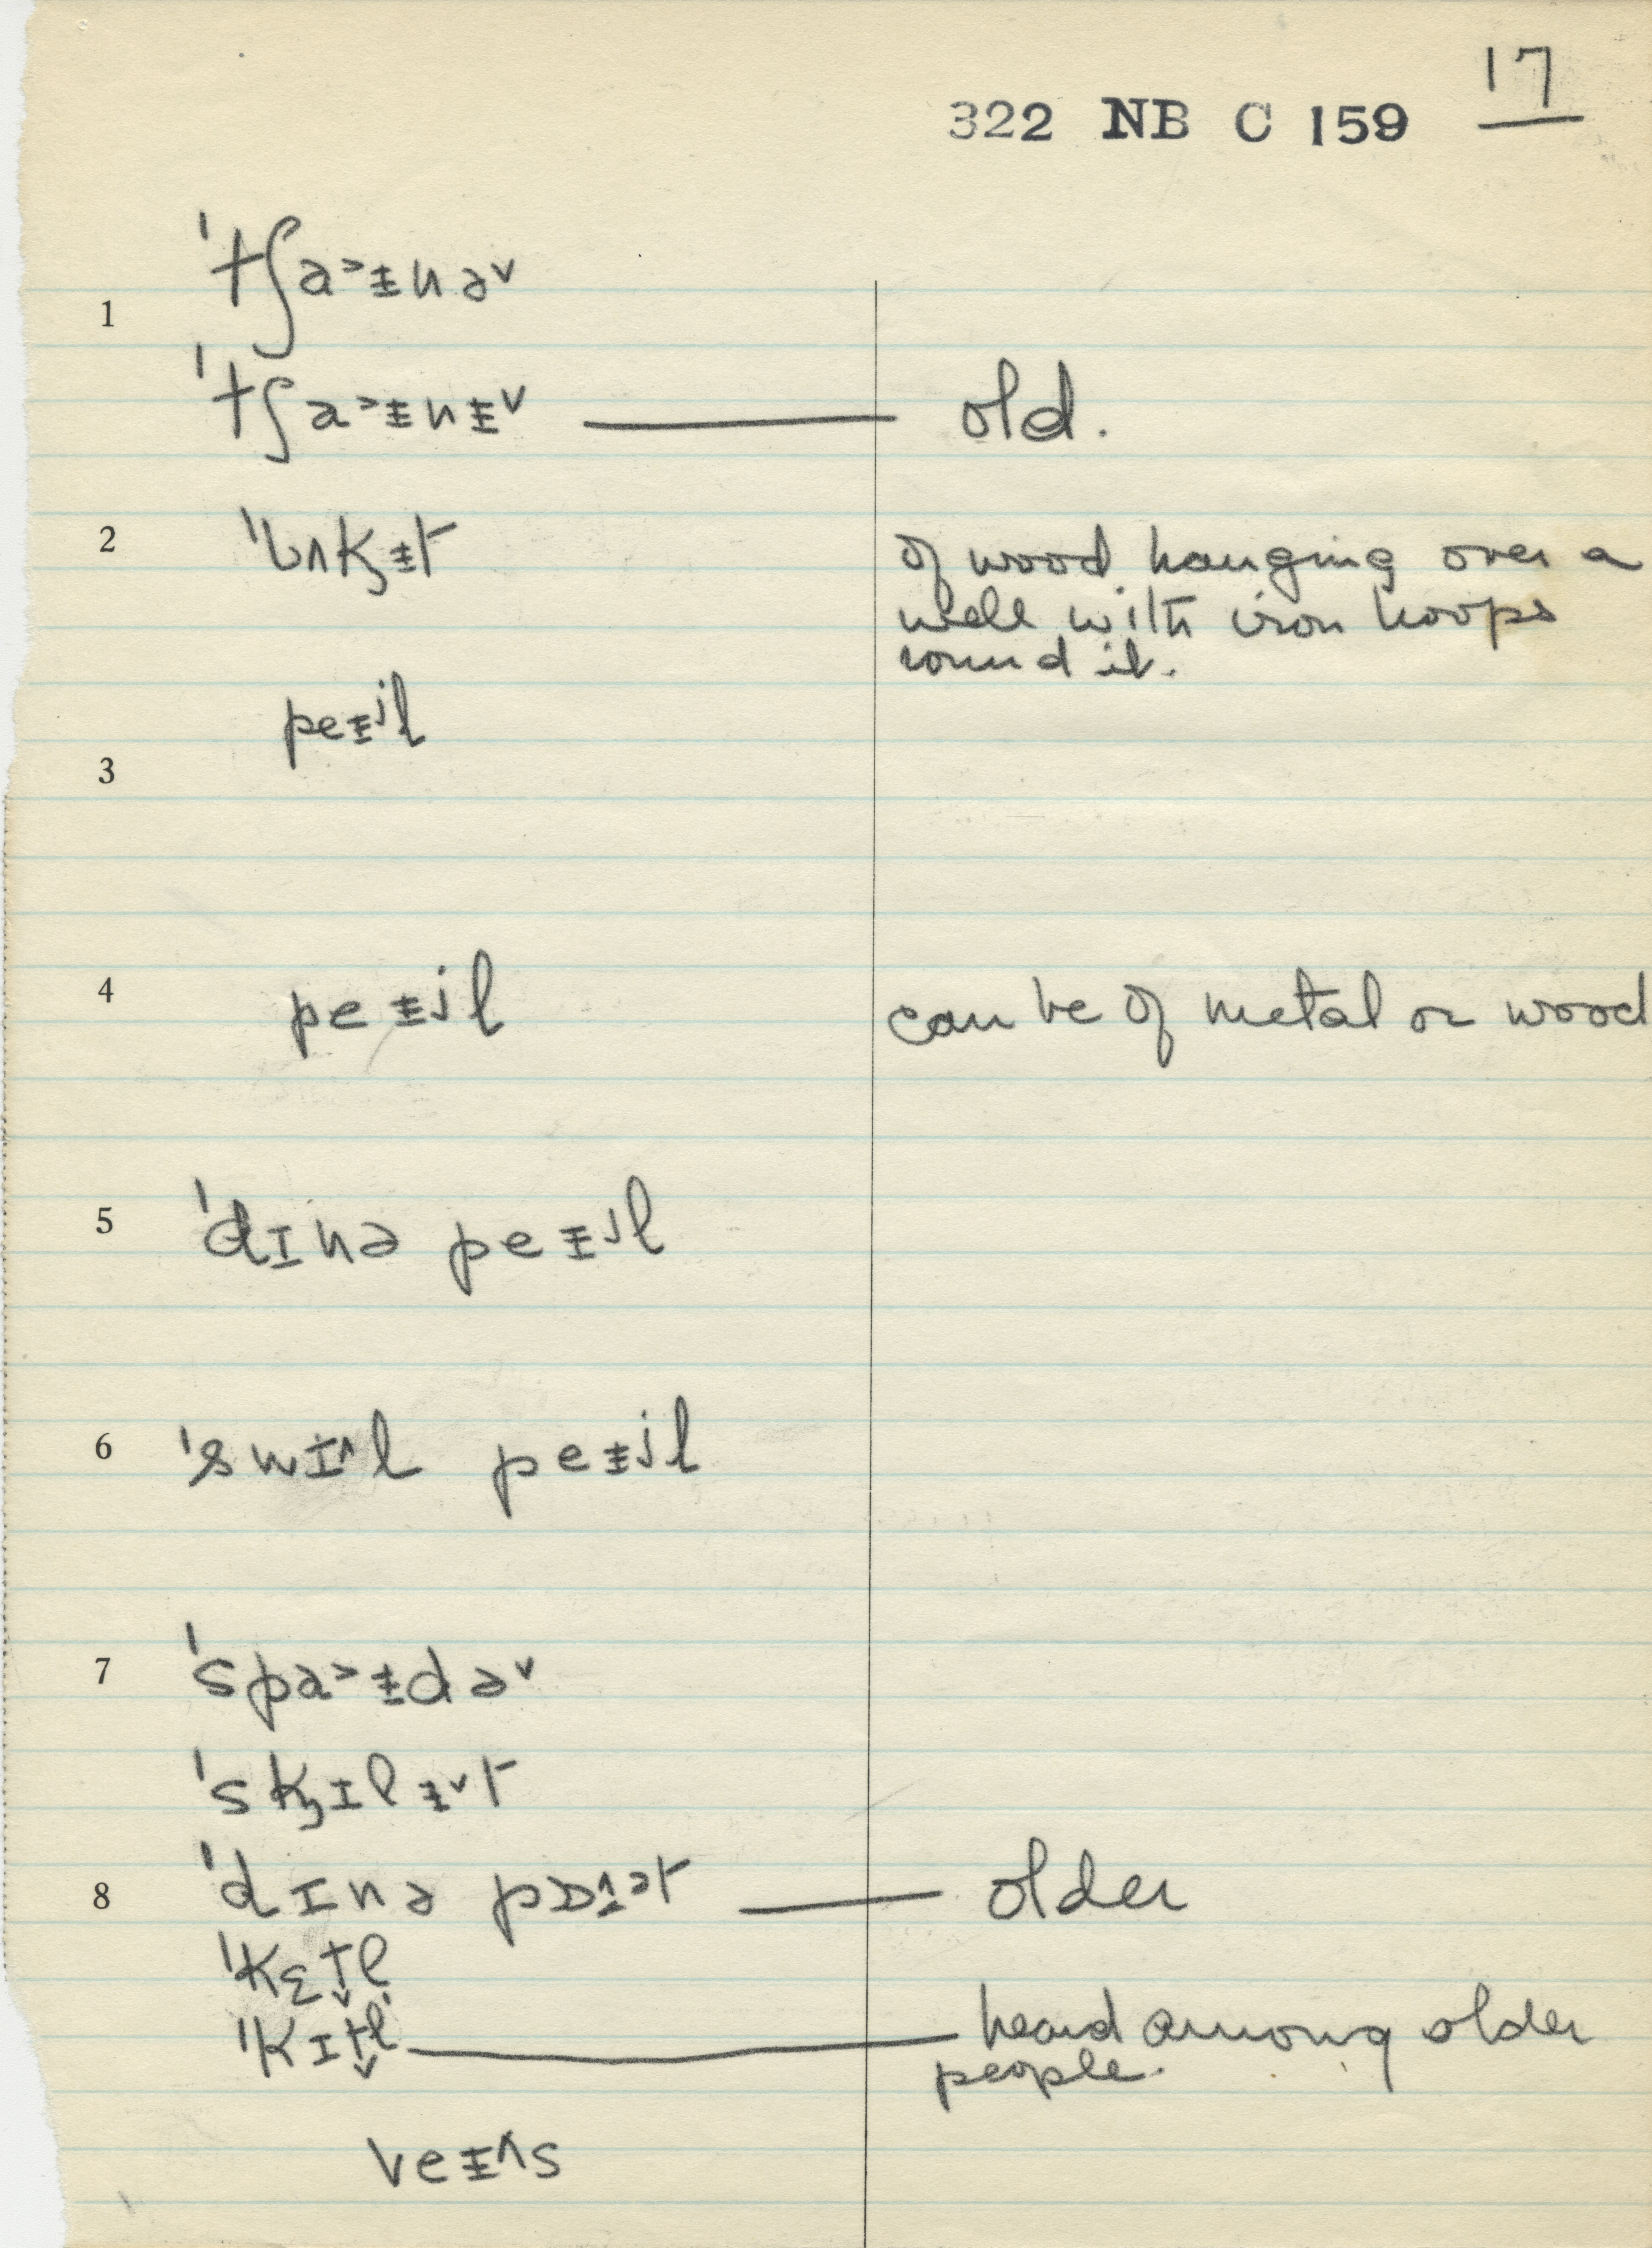 17
322 NB C 159
1 ˈtʃa˃ɪ̵nə˅
ˈtʃa˃ɪ̵nɪ̵˅ — old.
2 ˈbʌk̡ɪ̵t of wood hanging over a
well with iron hoops
round it.
peɪ̵ʲl
3
4 peɪ̵ʲl can be of metal or wood
5 ˈdɪnə peɪ̵ʲl
6 ˈswɪ˄l peɪ̵ʲl
7 ˈspa˃ɪ̵də˅
ˈsk̡ɪlɪ̵˅t
8 ˈdɪnə pɒɪ̵˄ət — older
ˈkɛt̬l̩
ˈkɪt̬l̩ — heard among older
people.
veɪ̵˄s